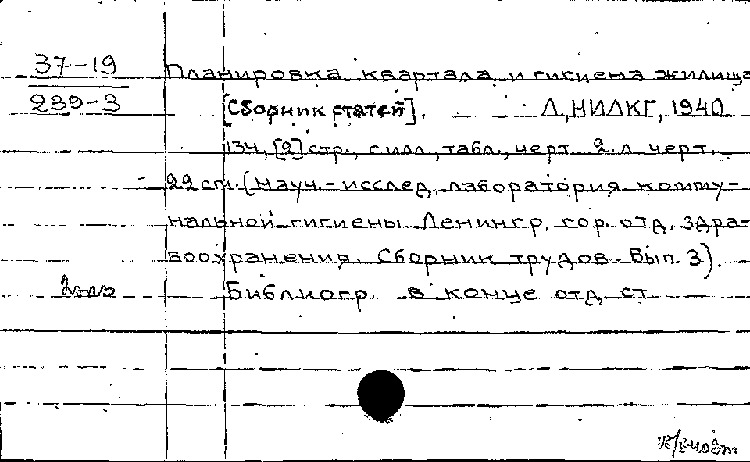 37-19
239-3
Планировка квартала и гигиена жилища
[Сборник статей]. Л, НИЛКГ, 1940
134, [2] стр., с илл, табл., черт. 2 л черт.
22 см. (Науч.-исслед. лаборатория комму-
нальной гигиены Ленингр. гор. отд. здра-
воохранения. Сборник трудов. Вып. 3).
Библиогр. в конце отд. ст.